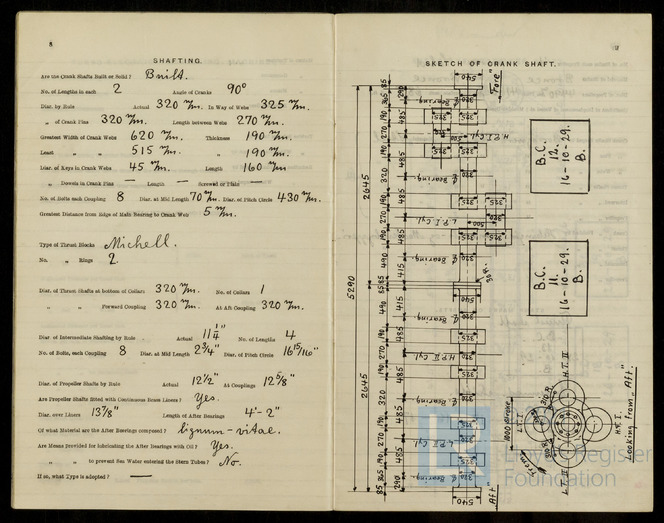 8
SHAFTING.
Are the Crank Shafts Built or Solid? Built.
No. of Lengths in each 2 Angle of Cranks 90°
Diar. by Rule Actual 320 m/m. In Way of Webs 325 m/m.
„ of Crank Pins 320 m/m. Length between Webs 270 m/m.
Greatest Width of Crank Webs 620 m/m. Thickness 190 m/m.
Least „ „ 515 m/m. „ 190 m/m.
Diar. of Keys in Crank Webs 45 m/m. Length 160 m/m
„ Dowels in Crank Pins — Length — Screwed or Plain —
No. of Bolts each Coupling 8 Diar. at Mid Length 70 m/m. Diar. of Pitch Circle 430 m/m.
Greatest Distance from Edge of Main Bearing to Crank Web 5 m/m.
Type of Thrust Blocks Michell.
No. „ Rings 2
Diar. of Thrust Shafts at bottom of Collars 320 m/m. No. of Collars 1
„ „ Forward Coupling 320 m/m. At Aft Coupling 320 m/m.
Diar. of Intermediate Shafting by Rule Actual 11 1/4" No. of Lengths 4
No. of Bolts, each Coupling 8 Diar. at Mid Length 2 3/4" Diar. of Pitch Circle 16 15/16"
Diar. of Propeller Shafts by Rule Actual 12 1/2" At Couplings 12 5/8"
Are Propeller Shafts fitted with Continuous Brass Liners? Yes.
Diar. over Liners 13 7/8" Length of After Bearings 4'-2"
Of what Material are the After Bearings composed? lignum-vitae.
Are Means provided for lubricating the After Bearings with Oil? Yes.
„ „ to prevent Sea Water entering the Stern Tubes? No.
If so, what Type is adopted? —
SKETCH OF CRANK SHAFT.
540
"Fore"
85
305
290
190
270
190
320
485
485
℄ Bearing
H.P.I Cyl.
325
320
500
2645
5290
℄ Bearing.
190
270
190
490
485
485
415
L.P.I Cyl.
325
85
85
490
415
190
270
190
320
485
485
℄ Bearing
H.P.II Cyl.
2645
℄ Bearing
190
270
190
305
85
485
485
290
L.P.II Cyl.
540
"Aft"
B.C.
12.
16-10-29.
B.
B.C.
11.
16-10-29.
B.
H.T. II
H.T. I.
L.T. I.
L.T. II
1000 Stroke
Looking from "Aft".
Lloyd's Register
Foundation